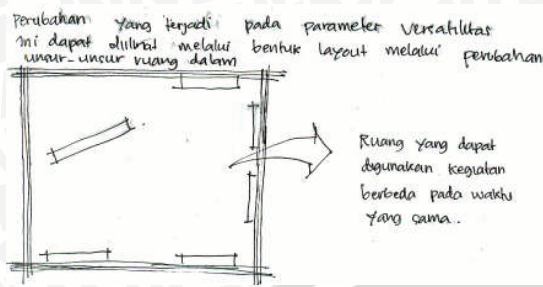 perubahan yang terjadi pada parameter versatilitas
ini dapat dilihat melalui bentuk layout melalui perubahan
unsur-unsur ruang dalam
Ruang yang dapat
digunakan kegiatan
berbeda pada waktu
yang sama.